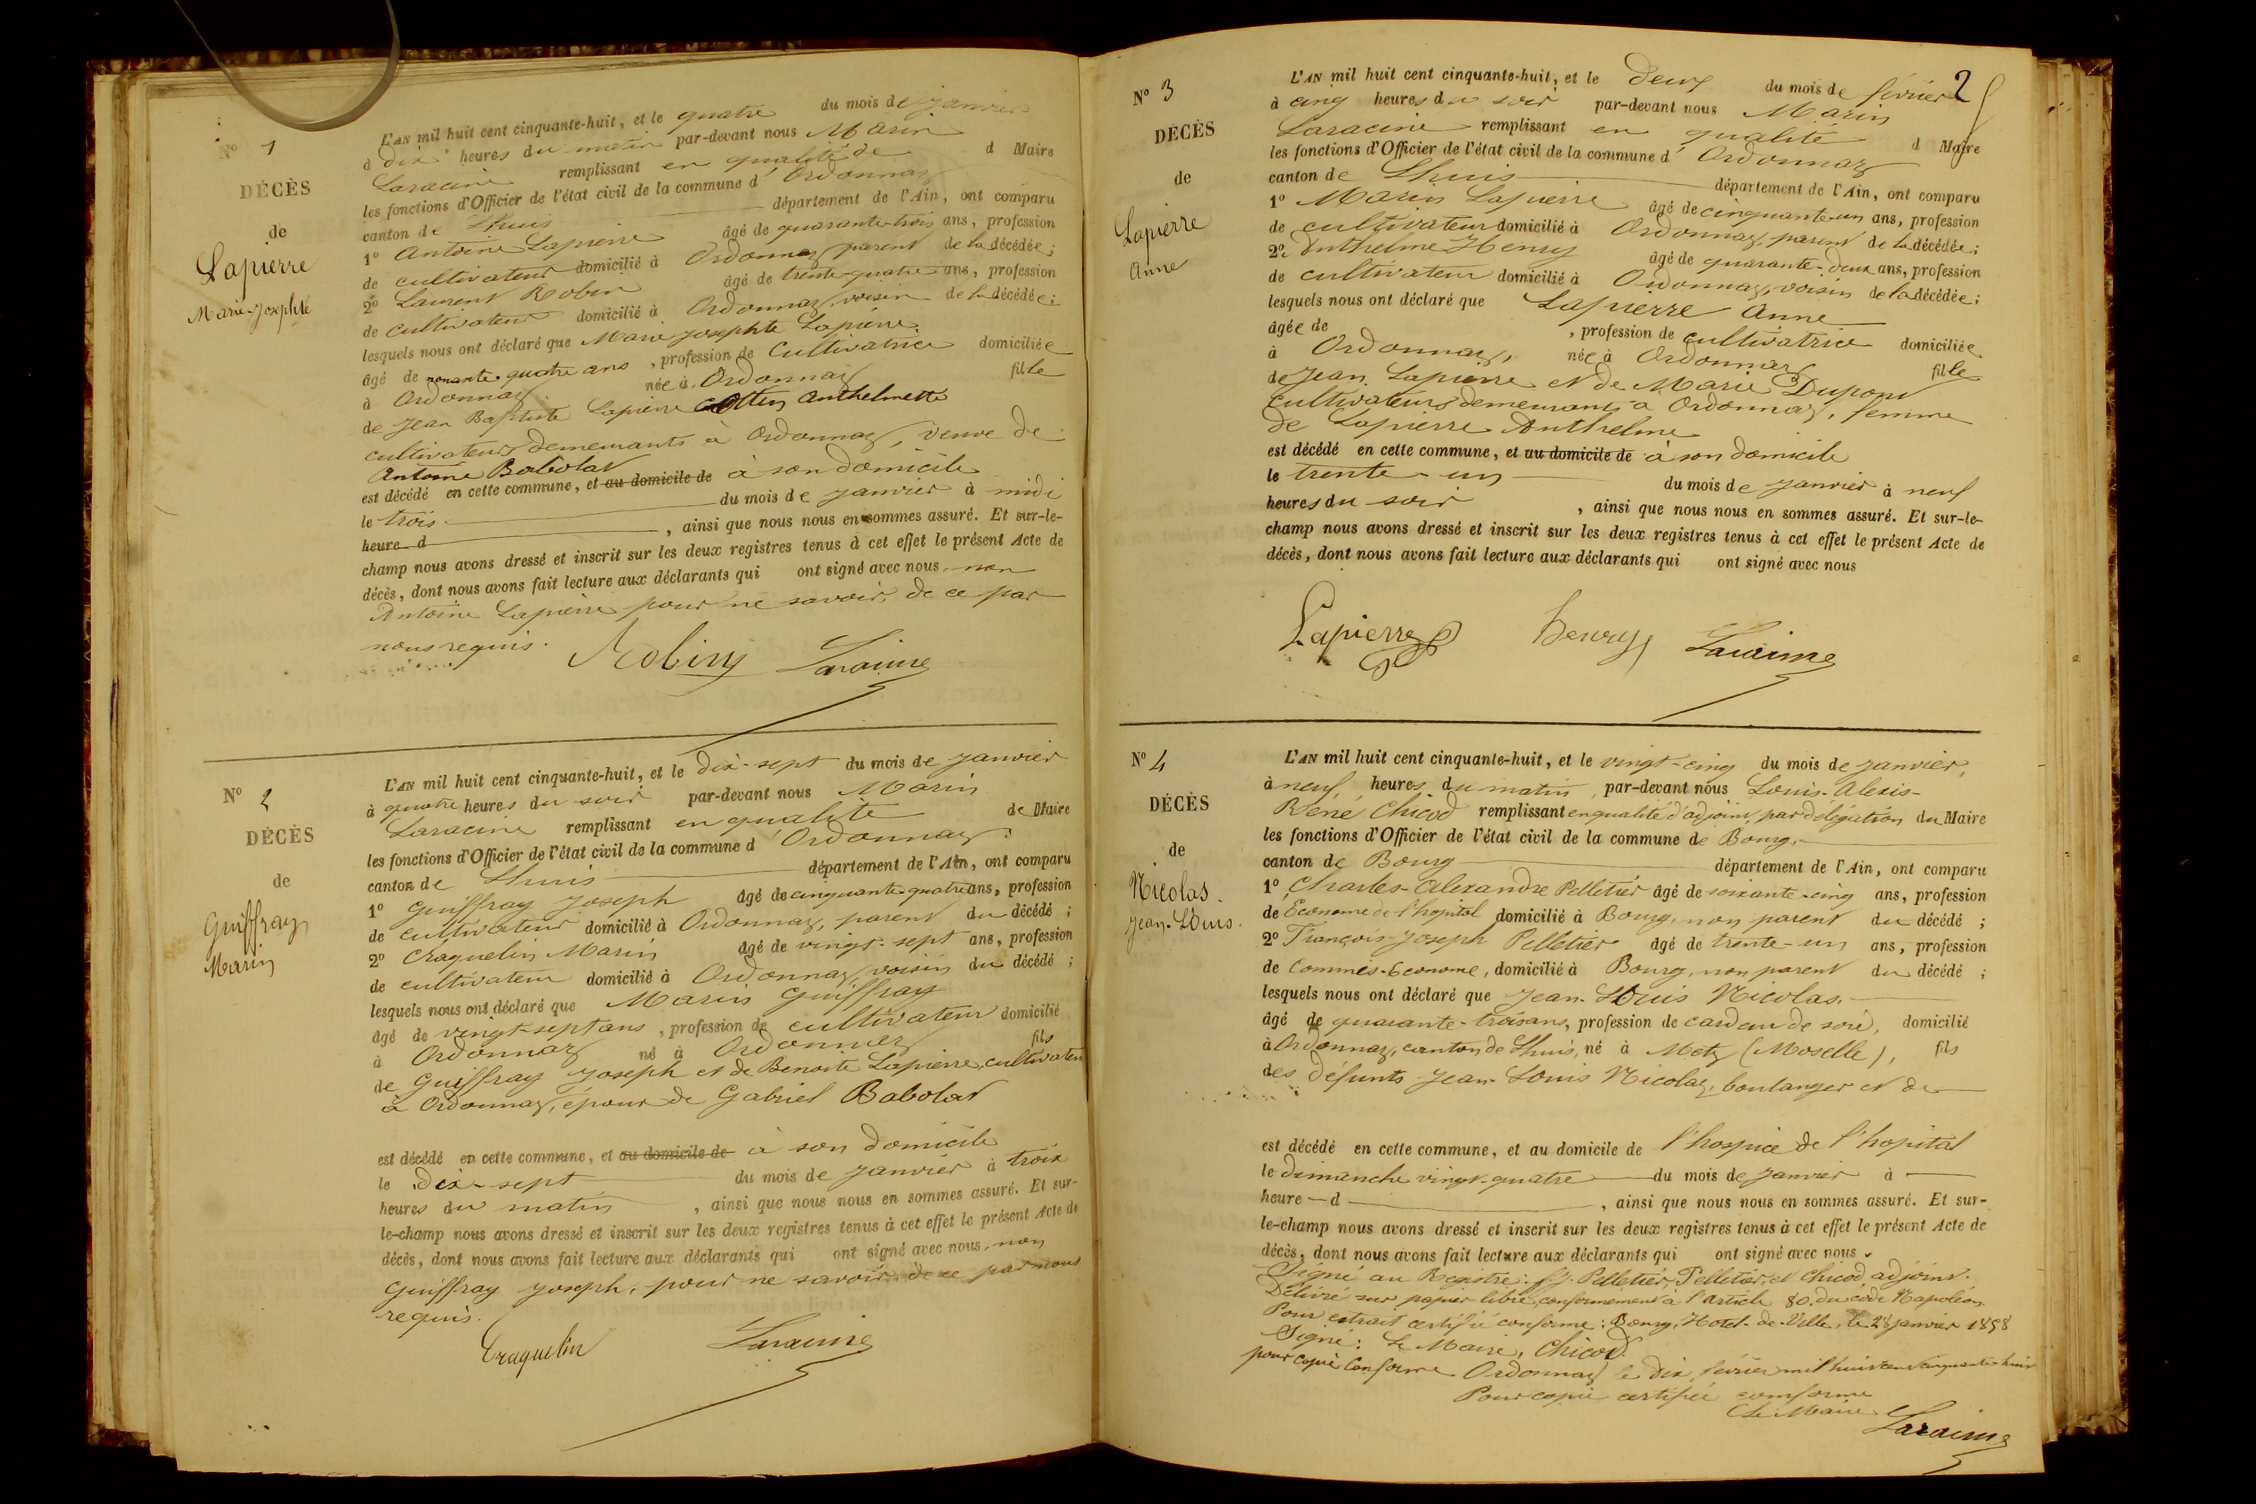 Nº 1
DÉCÈS
de
Lapierre
Marie-Josephte
L'AN mil huit cent cinquante-huit, et le quatre du mois de janvier
à dix heures du matin par-devant nous Marin
Laracine remplissant en qualité de d Maire
les fonctions d'Officier de l'état civil de la commune d'Ordonnaz
canton de Lhuis département de l'Ain, ont comparu
1º Antoine Lapierre âgé de quarante-trois ans, profession
de cultivateur domicilié à Ordonnaz, parent de la décédée;
2º Laurent Robin âgé de trente-quatre ans, profession
de cultivateur domicilié à Ordonnaz, voisin de la décédée;
lesquels nous ont déclaré que Marie Josephte Lapierre
âgé de nonante quatre ans, profession de cultivatrice domiciliée
à Ordonnaz née à Ordonnaz fille
de Jean Baptiste Lapierre Cottin Anthelmette
cultivateurs demeurants à Ordonnaz, veuve de
Antoine Babolat
est décédé en cette commune, et au domicile de à son domicile
le trois du mois de janvier à midi
heure d , ainsi que nous nous en sommes assuré. Et sur-le-
champ nous avons dressé et inscrit sur les deux registres tenus à cet effet le présent Acte de
décès, dont nous avons fait lecture aux déclarants qui ont signé avec nous, non
Antoine Lapierre pour ne savoir, de ce par
nous requis.
Robin Laracine
Nº 2
DÉCÈS
de
Guiffray
Marin
L'AN mil huit cent cinquante-huit, et le dix-sept du mois de janvier
à quatre heures du soir par-devant nous Marin
Laracine remplissant en qualité de Maire
les fonctions d'Officier de l'état civil de la commune d'Ordonnaz
canton de Lhuis département de l'Ain, ont comparu
1º Guiffray Joseph âgé de cinquante-quatre ans, profession
de cultivateur domicilié à Ordonnaz, parent du décédé;
2º Craquelin Marin âgé de vingt-sept ans, profession
de cultivateur domicilié à Ordonnaz, voisin du décédé;
lesquels nous ont déclaré que Marin Guiffray
âgé de vingt-sept ans, profession de cultivateur domicilié
à Ordonnaz né à Ordonnaz fils
de Guiffray Joseph et de Benoite Lapierre, cultivateurs
à Ordonnaz, époux de Gabriel Babolat
est décédé en cette commune, et au domicile de à son domicile
le dix-sept du mois de janvier à trois
heures du matin, ainsi que nous nous en sommes assuré. Et sur-
le-champ nous avons dressé et inscrit sur les deux registres tenus à cet effet le présent Acte de
décès, dont nous avons fait lecture aux déclarants qui ont signé avec nous, non
Guiffray Joseph, pour ne savoir, de ce par nous
requis.
Craquelin Laracine
2
Nº 3
DÉCÈS
de
Lapierre
Anne
L'AN mil huit cent cinquante-huit, et le deux du mois de février
à cinq heures du soir par-devant nous Marin
Laracine remplissant en qualité d Maire
les fonctions d'Officier de l'état civil de la commune d'Ordonnaz
canton de Lhuis département de l'Ain, ont comparu
1º Marin Lapierre âgé de cinquante-un ans, profession
de cultivateur domicilié à Ordonnaz, parent de la décédée;
2º Anthelme Henry âgé de quarante-deux ans, profession
de cultivateur domicilié à Ordonnaz, voisin de la décédée;
lesquels nous ont déclaré que Lapierre Anne
âgée de , profession de cultivatrice domiciliée
à Ordonnaz, née à Ordonnaz fille
de Jean Lapierre et de Marie Dupont
cultivateurs demeurants à Ordonnaz, femme
de Lapierre Anthelme
est décédé en cette commune, et au domicile de à son domicile
le trente-un du mois de janvier à neuf
heures du soir, ainsi que nous nous en sommes assuré. Et sur-le-
champ nous avons dressé et inscrit sur les deux registres tenus à cet effet le présent Acte de
décès, dont nous avons fait lecture aux déclarants qui ont signé avec nous
Lapierre henry Laracine
Nº 4
DÉCÈS
de
Nicolas
Jean-Louis.
L'AN mil huit cent cinquante-huit, et le vingt-cinq du mois de janvier,
à neuf heures du matin, par-devant nous Louis-Alexis-
René Chicod remplissant en qualité d'adjoint par délégation du Maire
les fonctions d'Officier de l'état civil de la commune de Bourg,
canton de Bourg département de l'Ain, ont comparu
1º Charles-Alexandre Pelletier âgé de soixante-cinq ans, profession
de Econome de l'hopital domicilié à Bourg, non parent du décédé;
2º François-Joseph Pelletier âgé de trente-un ans, profession
de Commis-Econome, domicilié à Bourg, non parent du décédé;
lesquels nous ont déclaré que Jean-Louis Nicolas.
âgé de quarante-trois ans, profession de cardeur de soie, domicilié
à Ordonnaz, canton de Lhuis, né à Metz (Moselle), fils
des défunts Jean-Louis Nicolas, boulanger et de
est décédé en cette commune, et au domicile de l'hospice de l'hopital
le dimanche vingt-quatre du mois de janvier à
heure d , ainsi que nous nous en sommes assuré. Et sur-
le-champ nous avons dressé et inscrit sur les deux registres tenus à cet effet le présent Acte de
décès, dont nous avons fait lecture aux déclarants qui ont signé avec nous.
Signé au Registre: f. J. Pelletier, Pelletier, et Chicod, adjoint.
Délivré sur papier libre, conformément à l'article 80 du code Napoléon.
Pour extrait certifié conforme: Bourg, Hotel-de-Ville, le 28 janvier 1858
Signé: Le Maire, Chicod.
pour copie conforme Ordonnaz le dix février mil huit cent cinquante huit
Pour copie certifiée conforme
Le Maire
Laracine